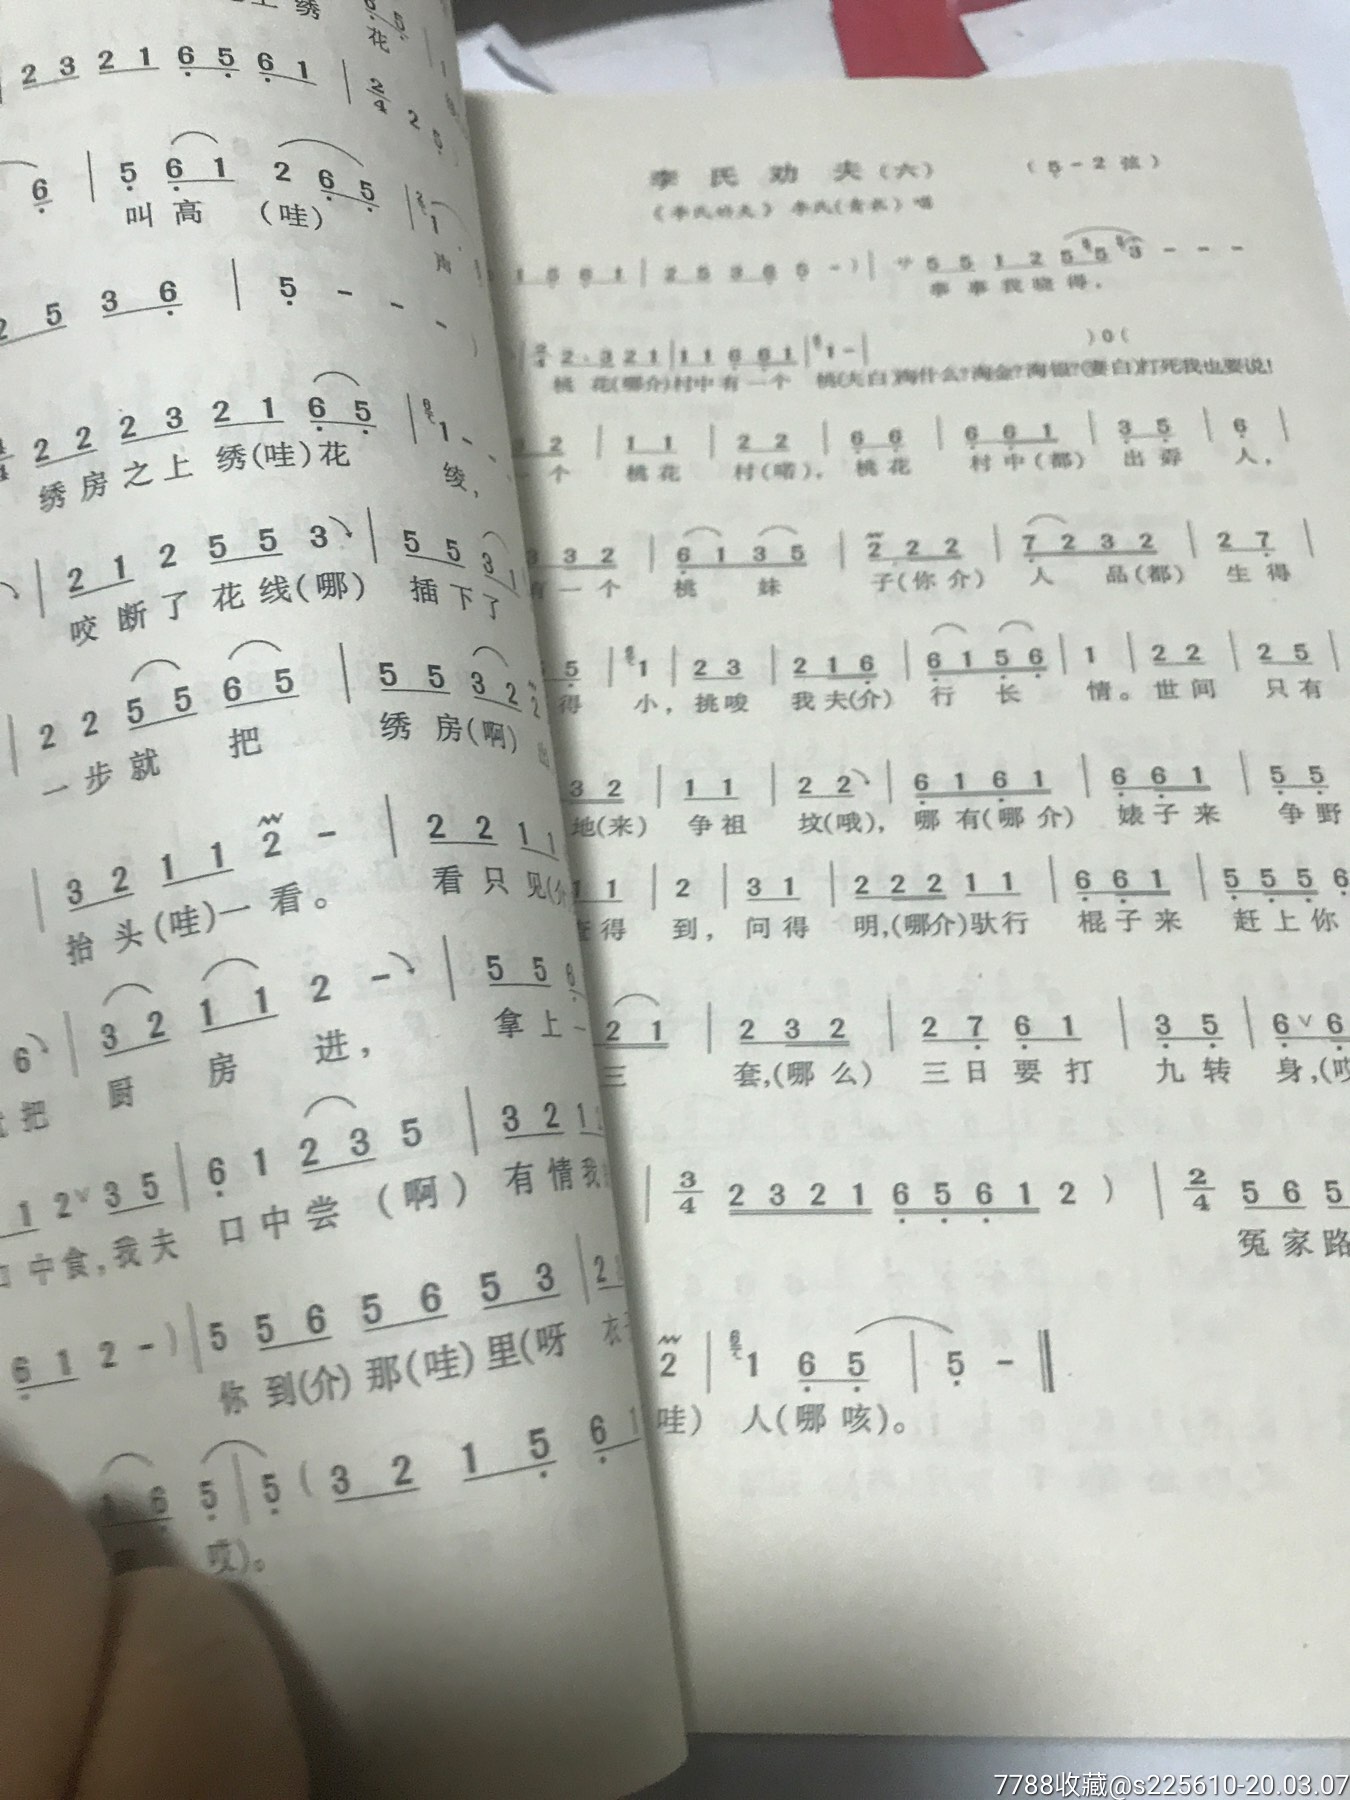 2 3 2 1 6 5 6 1
6 | 5 6 1 2 6 5
叫 高 (哇)
2 5 3 6 | 5 - - -
2 2 2 3 2 1 6 5 | 1 -
绣 房 之 上 绣(哇)花 绫,
| 2 1 2 5 5 3 | 5 5 3
咬 断 了 花 线(哪) 插 下 了
| 2 2 5 5 6 5 | 5 5 3 2
一 步 就 把 绣 房(啊)
| 3 2 1 1 2 - | 2 2 1 1
抬 头(哇)一 看。 看 只 见
6 | 3 2 1 1 2 - | 5 5 6
把 厨 房 进, 拿 上 一
1 2 3 5 | 6 1 2 3 5 | 3 2 1
食,我 夫 口 中 尝 (啊) 有 情 我
6 1 2 - ) | 5 5 6 5 6 5 3 | 2
你 到(介) 那(哇) 里(呀 衣
6 5 | 5 ( 3 2 1 5 6 1
哎)。
李 氏 劝 夫(六) (5-2 弦)
1 5 6 1 | 2 5 3 6 5 - ) | 5 5 1 2 5 5 3 - - -
事 事 我 晓 得,
)0(
2/4 2 . 3 2 1 | 1 1 6 6 1 | 1 - |
桃 花(哪介)村中 有 一 个 桃(夫白)淘什么?淘金?淘银?(妻白)打死我也要说!
2 | 1 1 | 2 2 | 6 6 | 6 6 1 | 3 5 | 6 |
个 桃 花 村(喏), 桃 花 村 中(都) 出 弄 人,
3 3 2 | 6 1 3 5 | 2 2 2 | 7 2 3 2 | 2 7 |
有 一 个 桃 妹 子(你 介) 人 品(都) 生 得
5 | 1 | 2 3 | 2 1 6 | 6 1 5 6 | 1 | 2 2 | 2 5 |
得 小, 挑唆 我 夫(介) 行 长 情。 世 间 只 有
3 2 | 1 1 | 2 2 | 6 1 6 1 | 6 6 1 | 5 5
地(来) 争 祖 坟(哦), 哪 有(哪 介) 婊 子 来 争 野
1 1 | 2 | 3 1 | 2 2 2 1 1 | 6 6 1 | 5 5 5 6
得 到, 问 得 明,(哪介)驮行 棍 子 来 赶 上 你
2 1 | 2 3 2 | 2 7 6 1 | 3 5 | 6 ∨ 6
三 套,(哪 么) 三 日 要 打 九 转 身,(哎
| 3/4 2 3 2 1 6 5 6 1 2 ) | 2/4 5 6 5
冤 家 路
2 | 1 6 5 | 5 - ‖
哇) 人(哪 咳)。
7788收藏@s225610-20.03.07